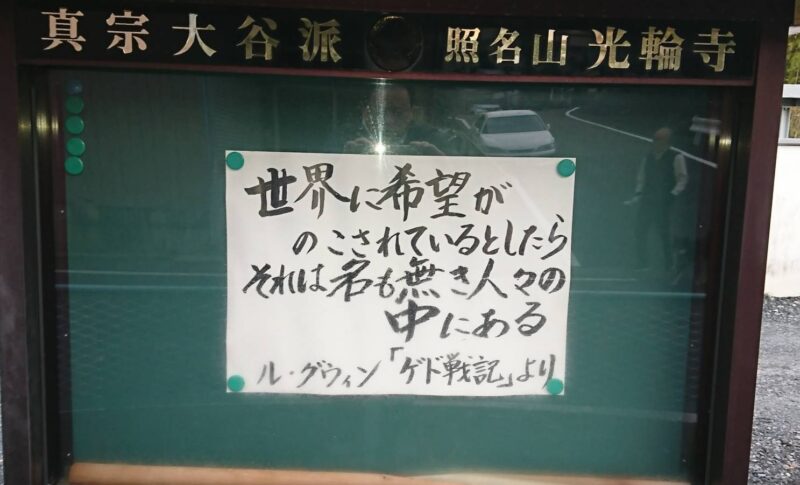 真宗大谷派 照名山 光輪寺
世界に希望が
のこされているとしたら
それは名も無き人々の
中にある
ル・グウィン「ゲド戦記」より